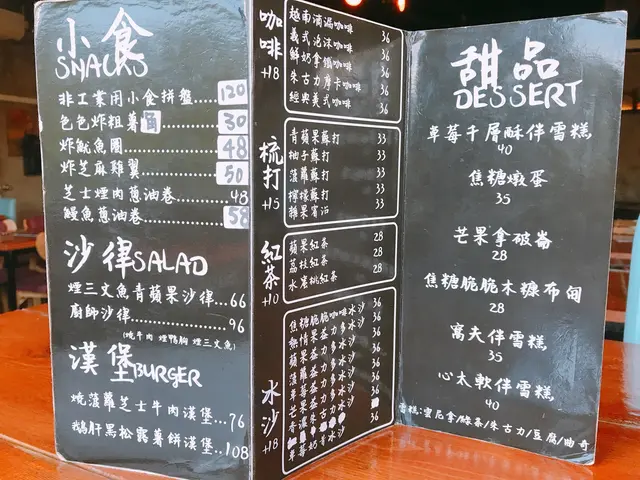 小食
SNACKS
非工業用小食拼盤......120
包包炸粗薯角......30
炸魷魚圈......48
炸芝麻雞翼......50
芝士煙肉蔥油卷......48
鰻魚蔥油卷......58
沙律SALAD
煙三文魚青蘋果沙律...66
廚師沙律......96
(燒牛肉 煙鴨胸 煙三文魚)
漢堡BURGER
燒菠蘿芝士牛肉漢堡...76
鵝肝黑松露薯餅漢堡...108
咖啡
+8
越南滴漏咖啡 36
義式泡沫咖啡 36
鮮奶拿鐵咖啡 36
朱古力摩卡咖啡 36
經典美式咖啡 36
梳打
+5
青蘋果蘇打 33
柚子蘇打 33
菠蘿蘇打 33
檸檬蘇打 33
雜果賓治 33
紅茶
+10
蘋果紅茶 28
荔枝紅茶 28
水蜜桃紅茶 28
冰沙
+18
焦糖脆脆咖啡冰沙 36
熱情果茶力多冰沙 36
蘋果茶力多冰沙 36
菠蘿茶力多冰沙 36
芒果茶力多冰沙 36
香濃朱古力冰沙
草莓奶冰沙 36
甜品
DESSERT
草莓千層酥伴雪糕
40
焦糖燉蛋
35
芒果拿破崙
28
焦糖脆脆木糠布甸
28
窩夫伴雪糕
35
心太軟伴雪糕
40
雪糕:雲尼拿/綠茶/朱古力/豆腐/曲奇